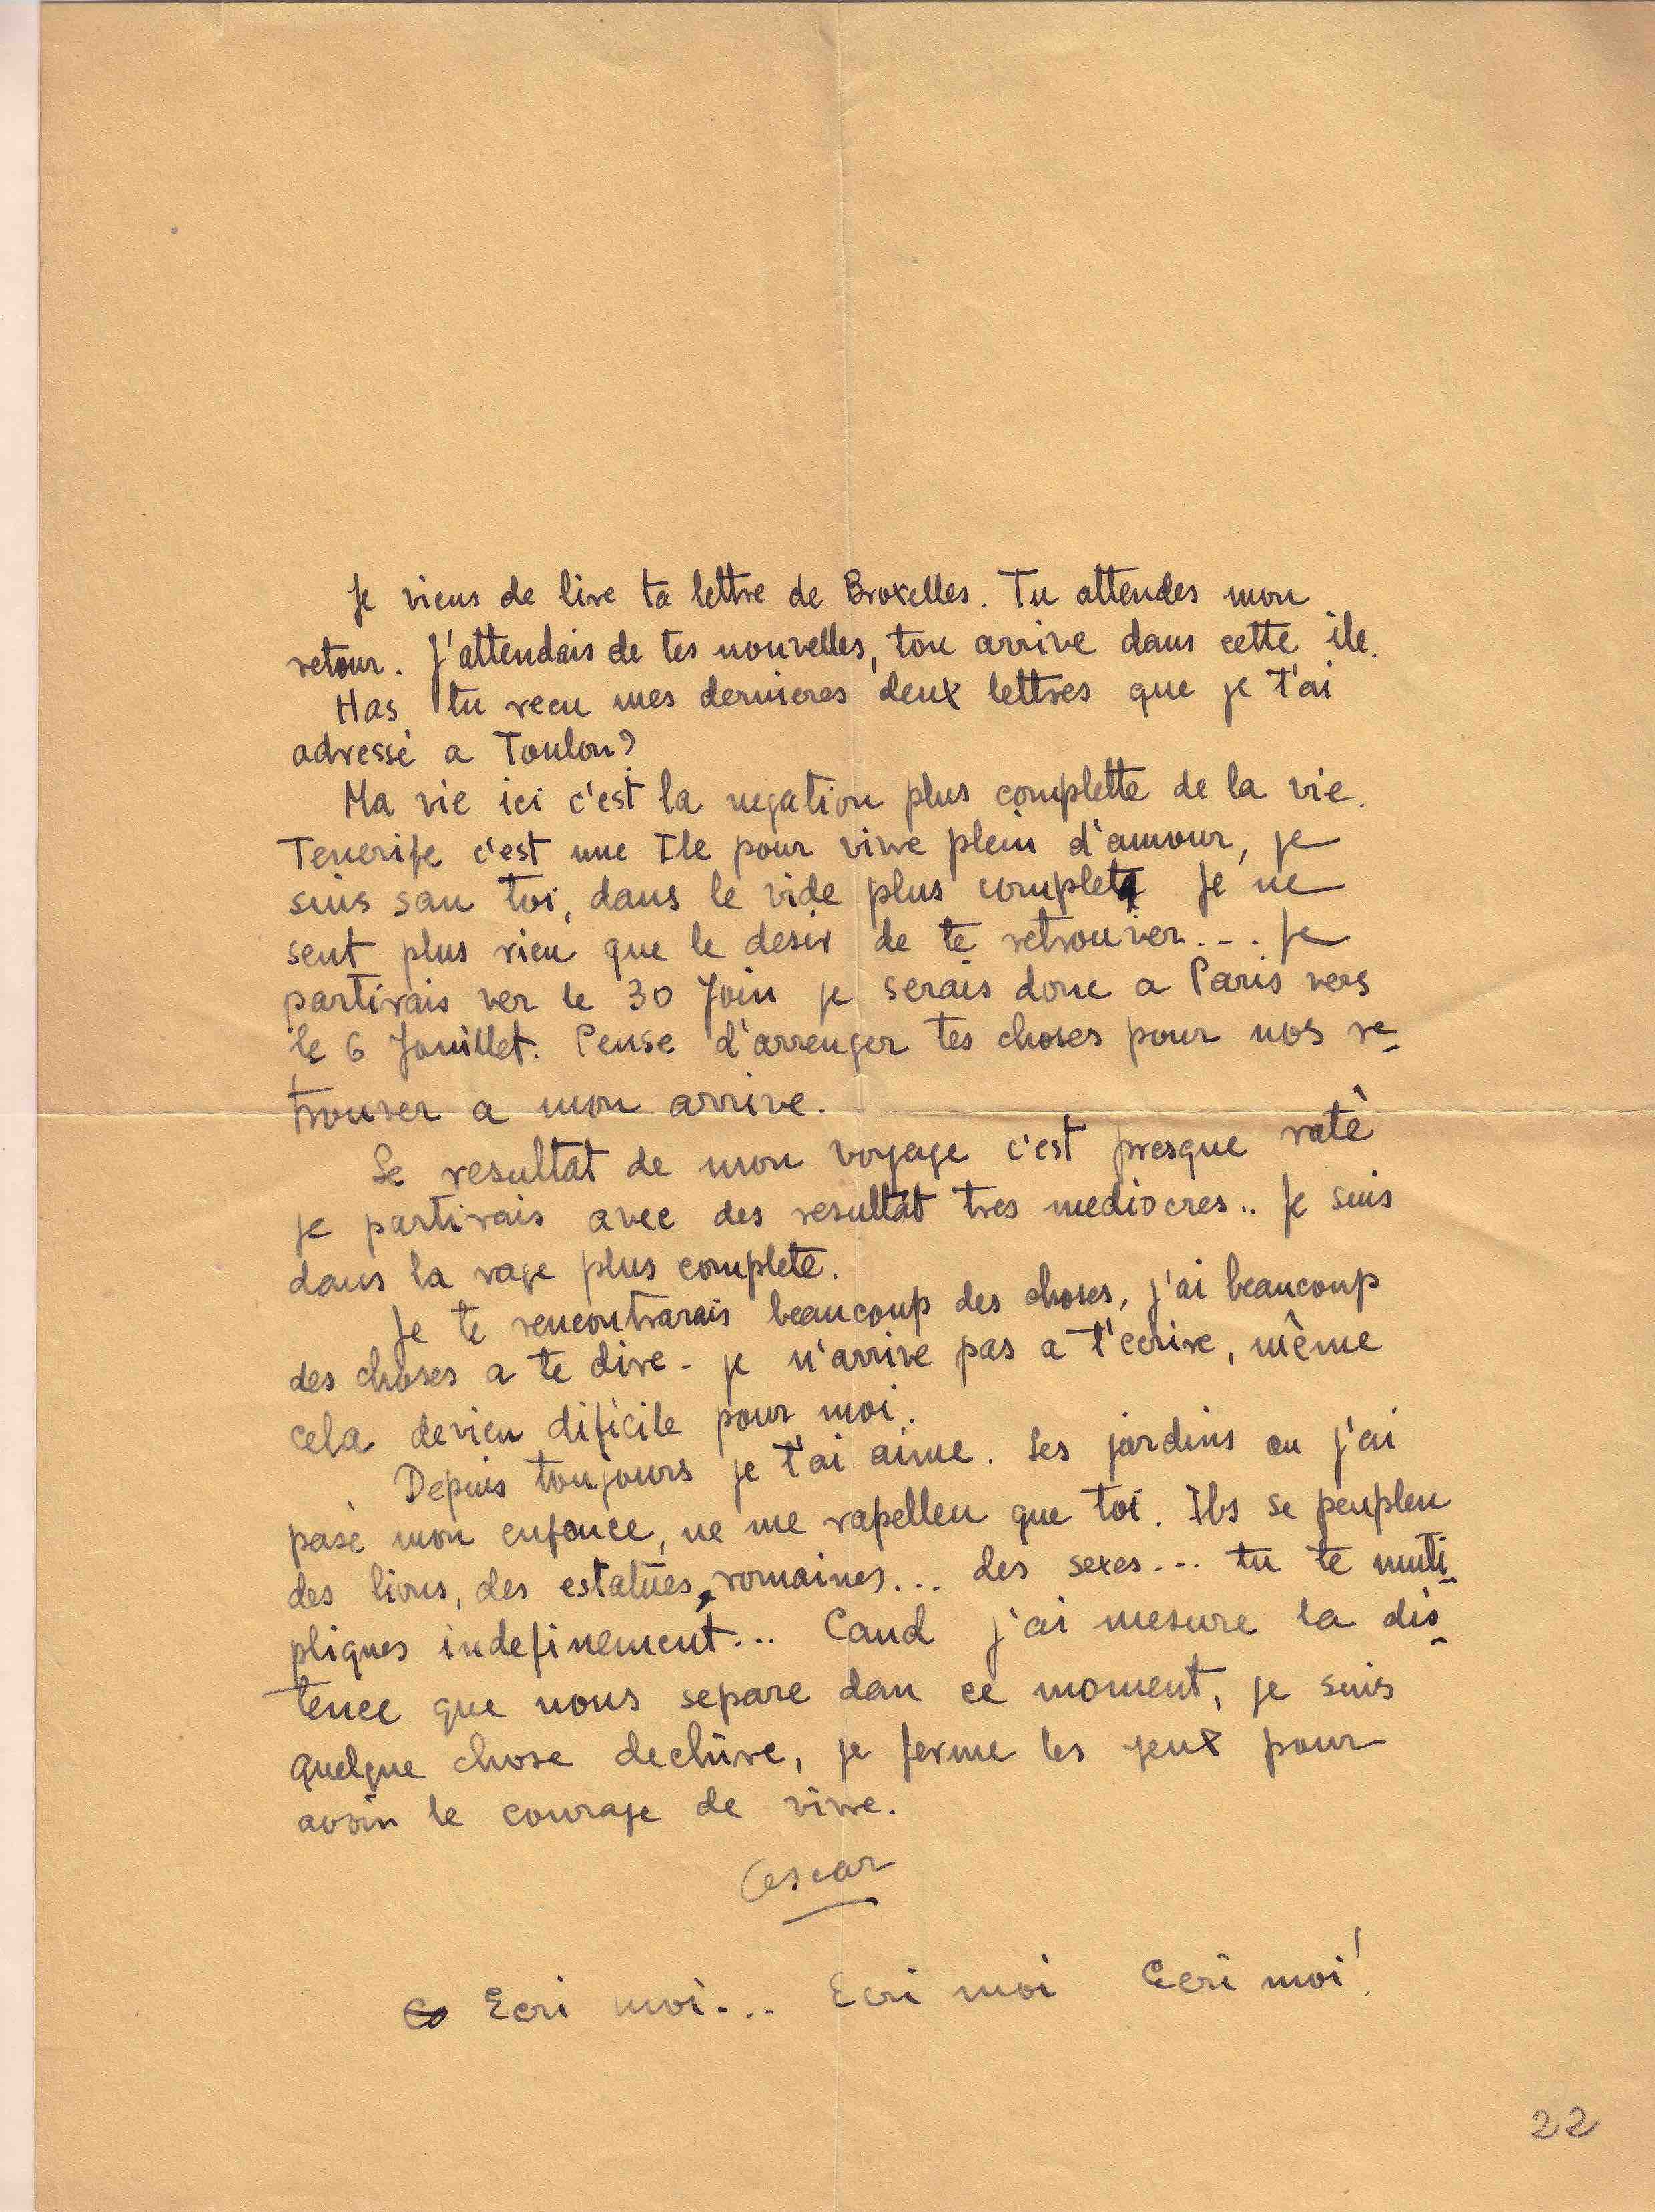 Je viens de lire ta lettre de Broxelles. Tu attendes mon
retour. J'attendais de tes nouvelles, ton arrive dans cette ile.
Has tu recu mes dernieres deux lettres que je t'ai
adressé a Toulon?
Ma vie ici c'est la negation plus complette de la vie.
Tenerife c'est une Ile pour vivre plein d'amour, je
suis san toi, dans le vide plus complet je ne
sent plus rien que le desir de te retrouver... Je
partirais ver le 30 Join je serais donc a Paris vers
le 6 Jouillet. Pense d'arrenger tes choses pour nos re-
trouver a mon arrive.
Le resultat de mon voyage c'est presque raté
je partirais avec des resultat tres mediocres.. Je suis
dans la rage plus complete.
Je te rencontrarais beaucoup des choses, j'ai beaucoup
des choses a te dire - je n'arrive pas a t'ecrire, même
cela devien dificile pour moi.
Depuis toujours je t'ai aime. Les jardins ou j'ai
pasé mon enfance, ne me rapellen que toi. Ils se peuplen
des lions, des estatues, romaines... des sexes... tu te muti-
pliques indefinement... Cand j'ai mesure la dis-
tence que nous separe dan ce moment, je suis
quelque chose dechire, je ferme les yeux pour
avoir le courage de vivre.
Oscar
Ecri moi... Ecri moi Ecri moi!
22